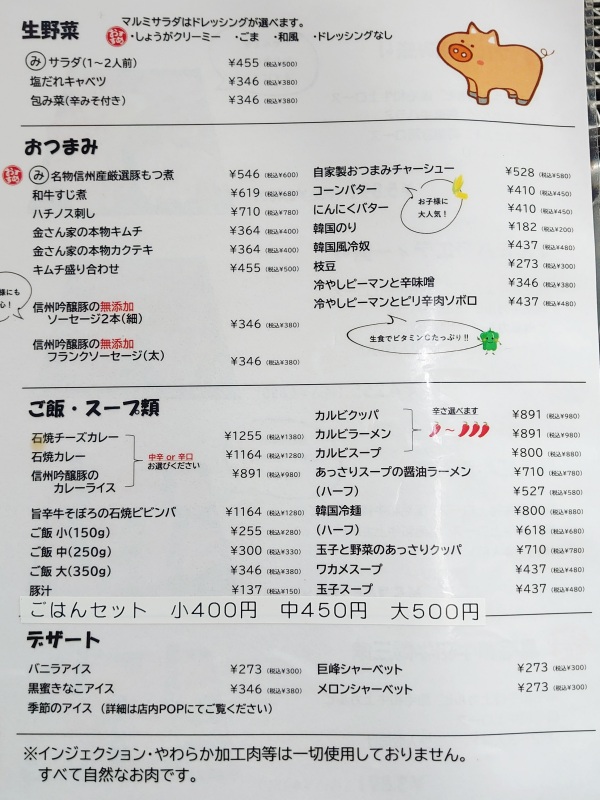 生野菜
マルミサラダはドレッシングが選べます。
おすすめ ・しょうがクリーミー ・ごま ・和風 ・ドレッシングなし
み サラダ(1〜2人前) ¥455 (税込¥500)
塩だれキャベツ ¥346 (税込¥380)
包み菜(辛みそ付き) ¥346 (税込¥380)
おつまみ
み 名物信州産厳選豚もつ煮 ¥546 (税込¥600)
和牛すじ煮 ¥619 (税込¥680)
ハチノス刺し ¥710 (税込¥780)
金さん家の本物キムチ ¥364 (税込¥400)
金さん家の本物カクテキ ¥364 (税込¥400)
キムチ盛り合わせ ¥455 (税込¥500)
様にも
心!
信州吟醸豚の無添加
ソーセージ2本(細) ¥346 (税込¥380)
信州吟醸豚の無添加
フランクソーセージ(太) ¥346 (税込¥380)
自家製おつまみチャーシュー ¥528 (税込¥580)
コーンバター ¥410 (税込¥450)
にんにくバター ¥410 (税込¥450)
お子様に
大人気!
韓国のり ¥182 (税込¥200)
韓国風冷奴 ¥437 (税込¥480)
枝豆 ¥273 (税込¥300)
冷やしピーマンと辛味噌 ¥346 (税込¥380)
冷やしピーマンとピリ辛肉ソボロ ¥437 (税込¥480)
生食でビタミンCたっぷり!!
ご飯・スープ類
石焼チーズカレー ¥1255 (税込¥1380)
石焼カレー ¥1164 (税込¥1280)
信州吟醸豚の
カレーライス ¥891 (税込¥980)
中辛 or 辛口
お選びください
旨辛牛そぼろの石焼ビビンバ ¥1164 (税込¥1280)
ご飯 小(150g) ¥255 (税込¥280)
ご飯 中(250g) ¥300 (税込¥330)
ご飯 大(350g) ¥346 (税込¥380)
豚汁 ¥137 (税込¥150)
カルビクッパ ¥891 (税込¥980)
カルビラーメン ¥891 (税込¥980)
カルビスープ ¥800 (税込¥880)
辛さ選べます
〜
あっさりスープの醤油ラーメン ¥710 (税込¥780)
(ハーフ) ¥527 (税込¥580)
韓国冷麺 ¥800 (税込¥880)
(ハーフ) ¥618 (税込¥680)
玉子と野菜のあっさりクッパ ¥710 (税込¥780)
ワカメスープ ¥437 (税込¥480)
玉子スープ ¥437 (税込¥480)
ごはんセット 小400円 中450円 大500円
デザート
バニラアイス ¥273 (税込¥300)
黒蜜きなこアイス ¥346 (税込¥380)
季節のアイス (詳細は店内POPにてご覧ください)
巨峰シャーベット ¥273 (税込¥300)
メロンシャーベット ¥273 (税込¥300)
※インジェクション・やわらか加工肉等は一切使用しておりません。
すべて自然なお肉です。